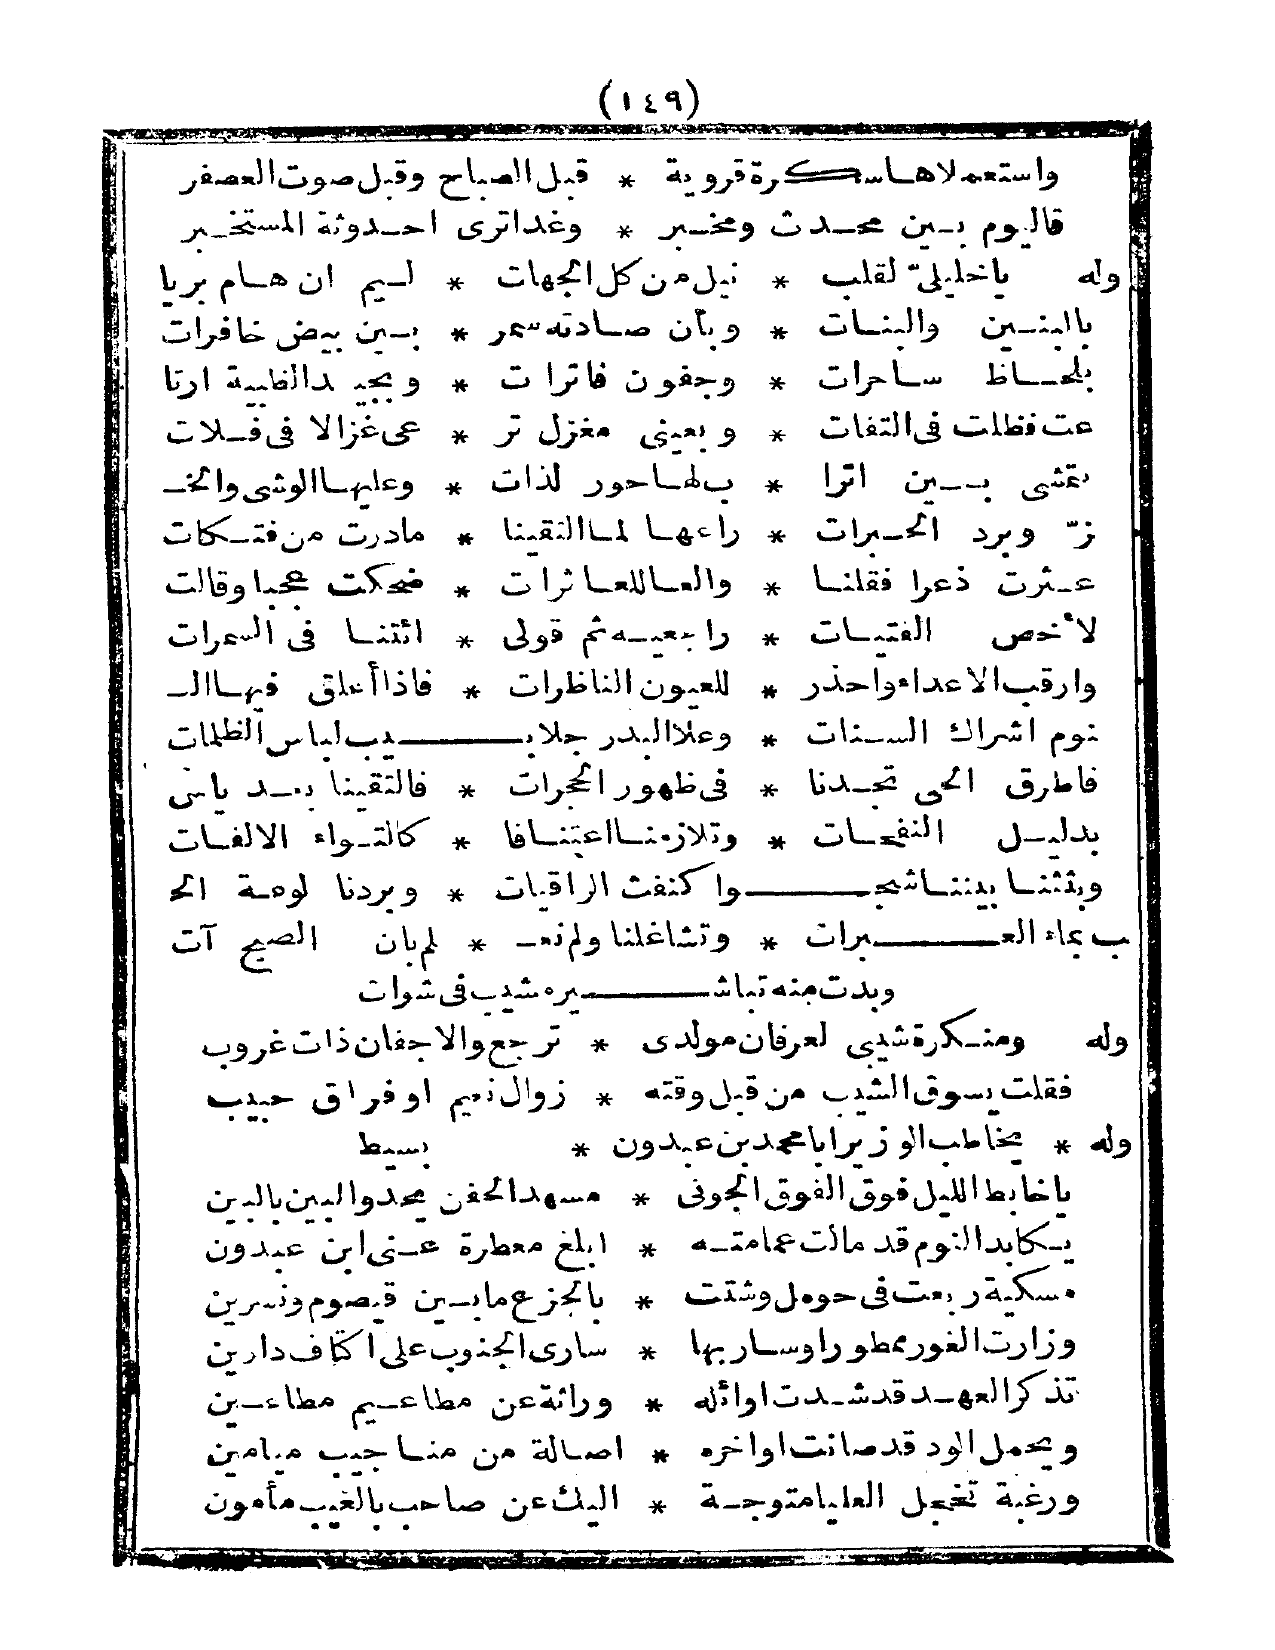 (١٤٩)
واستعملاها سكرة قروية * قبل الصباح وقبل صوت العصفر
فاليوم بين محدث ومخبر * وغدا ترى احدوثة المستخبر
وله يا خليلىّ لقلب * نيل من كل الجهات * ليم ان هام بريا
بالبنين والبنات * وبأن صادته سمر * بين بيض خافرات
بلحاظ ساحرات * وجفون فاترات * وبجيد الظبية ارتا
عت فظلت فى التفات * وبعينى مغزل تر * عى غزالا فى فلات
تمشى بين اترا * ب لها حور لذات * وعليها الوشى والخـ
زّ وبرد الحبرات * راعها لما التقينا * مادرت من فتكات
عثرت ذعرا فقلنا * والعا للعاثرات * ضحكت عجبا وقالت
لأخص الفتيات * راجعيه ثم قولى * ائتنا فى السمرات
وارقب الاعداء واحذر * للعيون الناظرات * فاذا أعلق فيها الـ
نوم اشراك السنات * وعلا البدر جلابـــيب لباس الظلمات
فاطرق الحى تجدنا * فى ظهور الحجرات * فالتقينا بعد ياس
بدليل النفحات * وتلازمنا اعتناقا * كالتواء الالفات
وبثثنا بيننا شجـــوا كنفث الراقيات * وبردنا لوعة الحـ
ب بماء العـــبرات * وتشاغلنا ولم نعـ * لم بان الصبح آت
وبدت منه تباشـــيره شيب فى شوات
وله ومنكرة شيبى لعرفان مولدى * ترجع والاجفان ذات غروب
فقلت يسوق الشيب من قبل وقته * زوال نعيم او فراق حبيب
وله * يخاطب الوزير ابا محمد بن عبدون * بسيط
يا خابط الليل فوق الفوق الجونى * مسهد الجفن محدو البين بالبين
يكابد النوم قد مالت عمامته * ابلغ معطرة عنى ابن عبدون
مسكية ربعت فى حومل وشتت * بالجزع ما بين قيصوم ونسرين
وزارت الغور ممطورا وسار بها * سارى الجنوب على اكناف دارين
تذكر العهد قد شدت اوائله * وراثة عن مطاعيم مطاعين
ويحمل الود قد صانت اواخره * اصالة من مناجيب ميامين
ورغبة تخجل العليا متوجة * اليك عن صاحب بالغيب مأمون